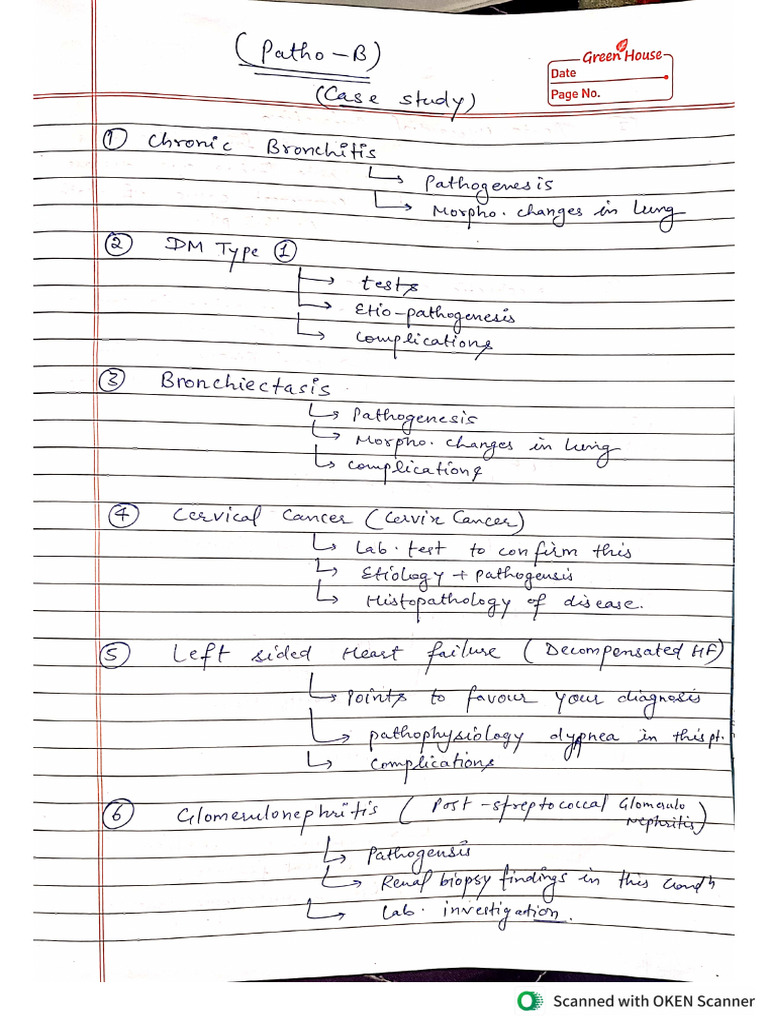 (Patho-B)
Green House
Date
Page No.
(Case study)
① Chronic Bronchitis
Pathogenesis
Morpho. changes in lung
② DM Type ①
tests
Etio-pathogenesis
Complications
③ Bronchiectasis
Pathogenesis
Morpho. changes in lung
Complications
④ Cervical Cancer (Cervix Cancer)
Lab. test to confirm this
Etiology + pathogensis
Histopathology of disease.
⑤ Left sided Heart failure (Decompensated HF)
Points to favour your diagnosis
pathophysiology dypnea in this pt.
Complications
⑥ Glomerulonephritis (Post-streptococcal Glomerulo
Nephritis)
Pathogensis
Renal biopsy findings in this condⁿ
Lab. investigation.
Scanned with OKEN Scanner